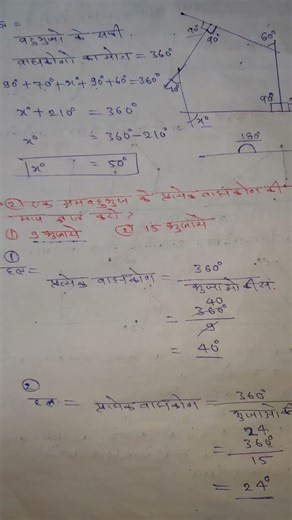 हल =
बहुभुजो के सभी
वाह्यकोणो का योग = 360°
90° + 70° + x° + 90° + 60° = 360°
x° + 210° = 360°
x° = 360° - 210°
x° = 50°
90°
90°
60°
90°
x°
180°
② एक समबहुभुज के प्रत्येक वाह्यकोण की
माप ज्ञात करो ?
① 9 भुजाये ② 15 भुजाये
①
हल = प्रत्येक वाह्यकोण = 360°
भुजाओ की सं.
40
= 360°
9
= 40°
②
हल = प्रत्येक वाह्यकोण = 360°
भुजाओ की
24
= 360°
15
= 24°